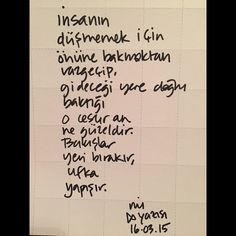 insanın
düşmemek için
önüne bakmaktan
vazgeçip,
gideceği yere doğru
baktığı
o cesur an
ne güzeldir.
Bakışlar
yeri bırakır,
ufka
yapışır.
16.03.15